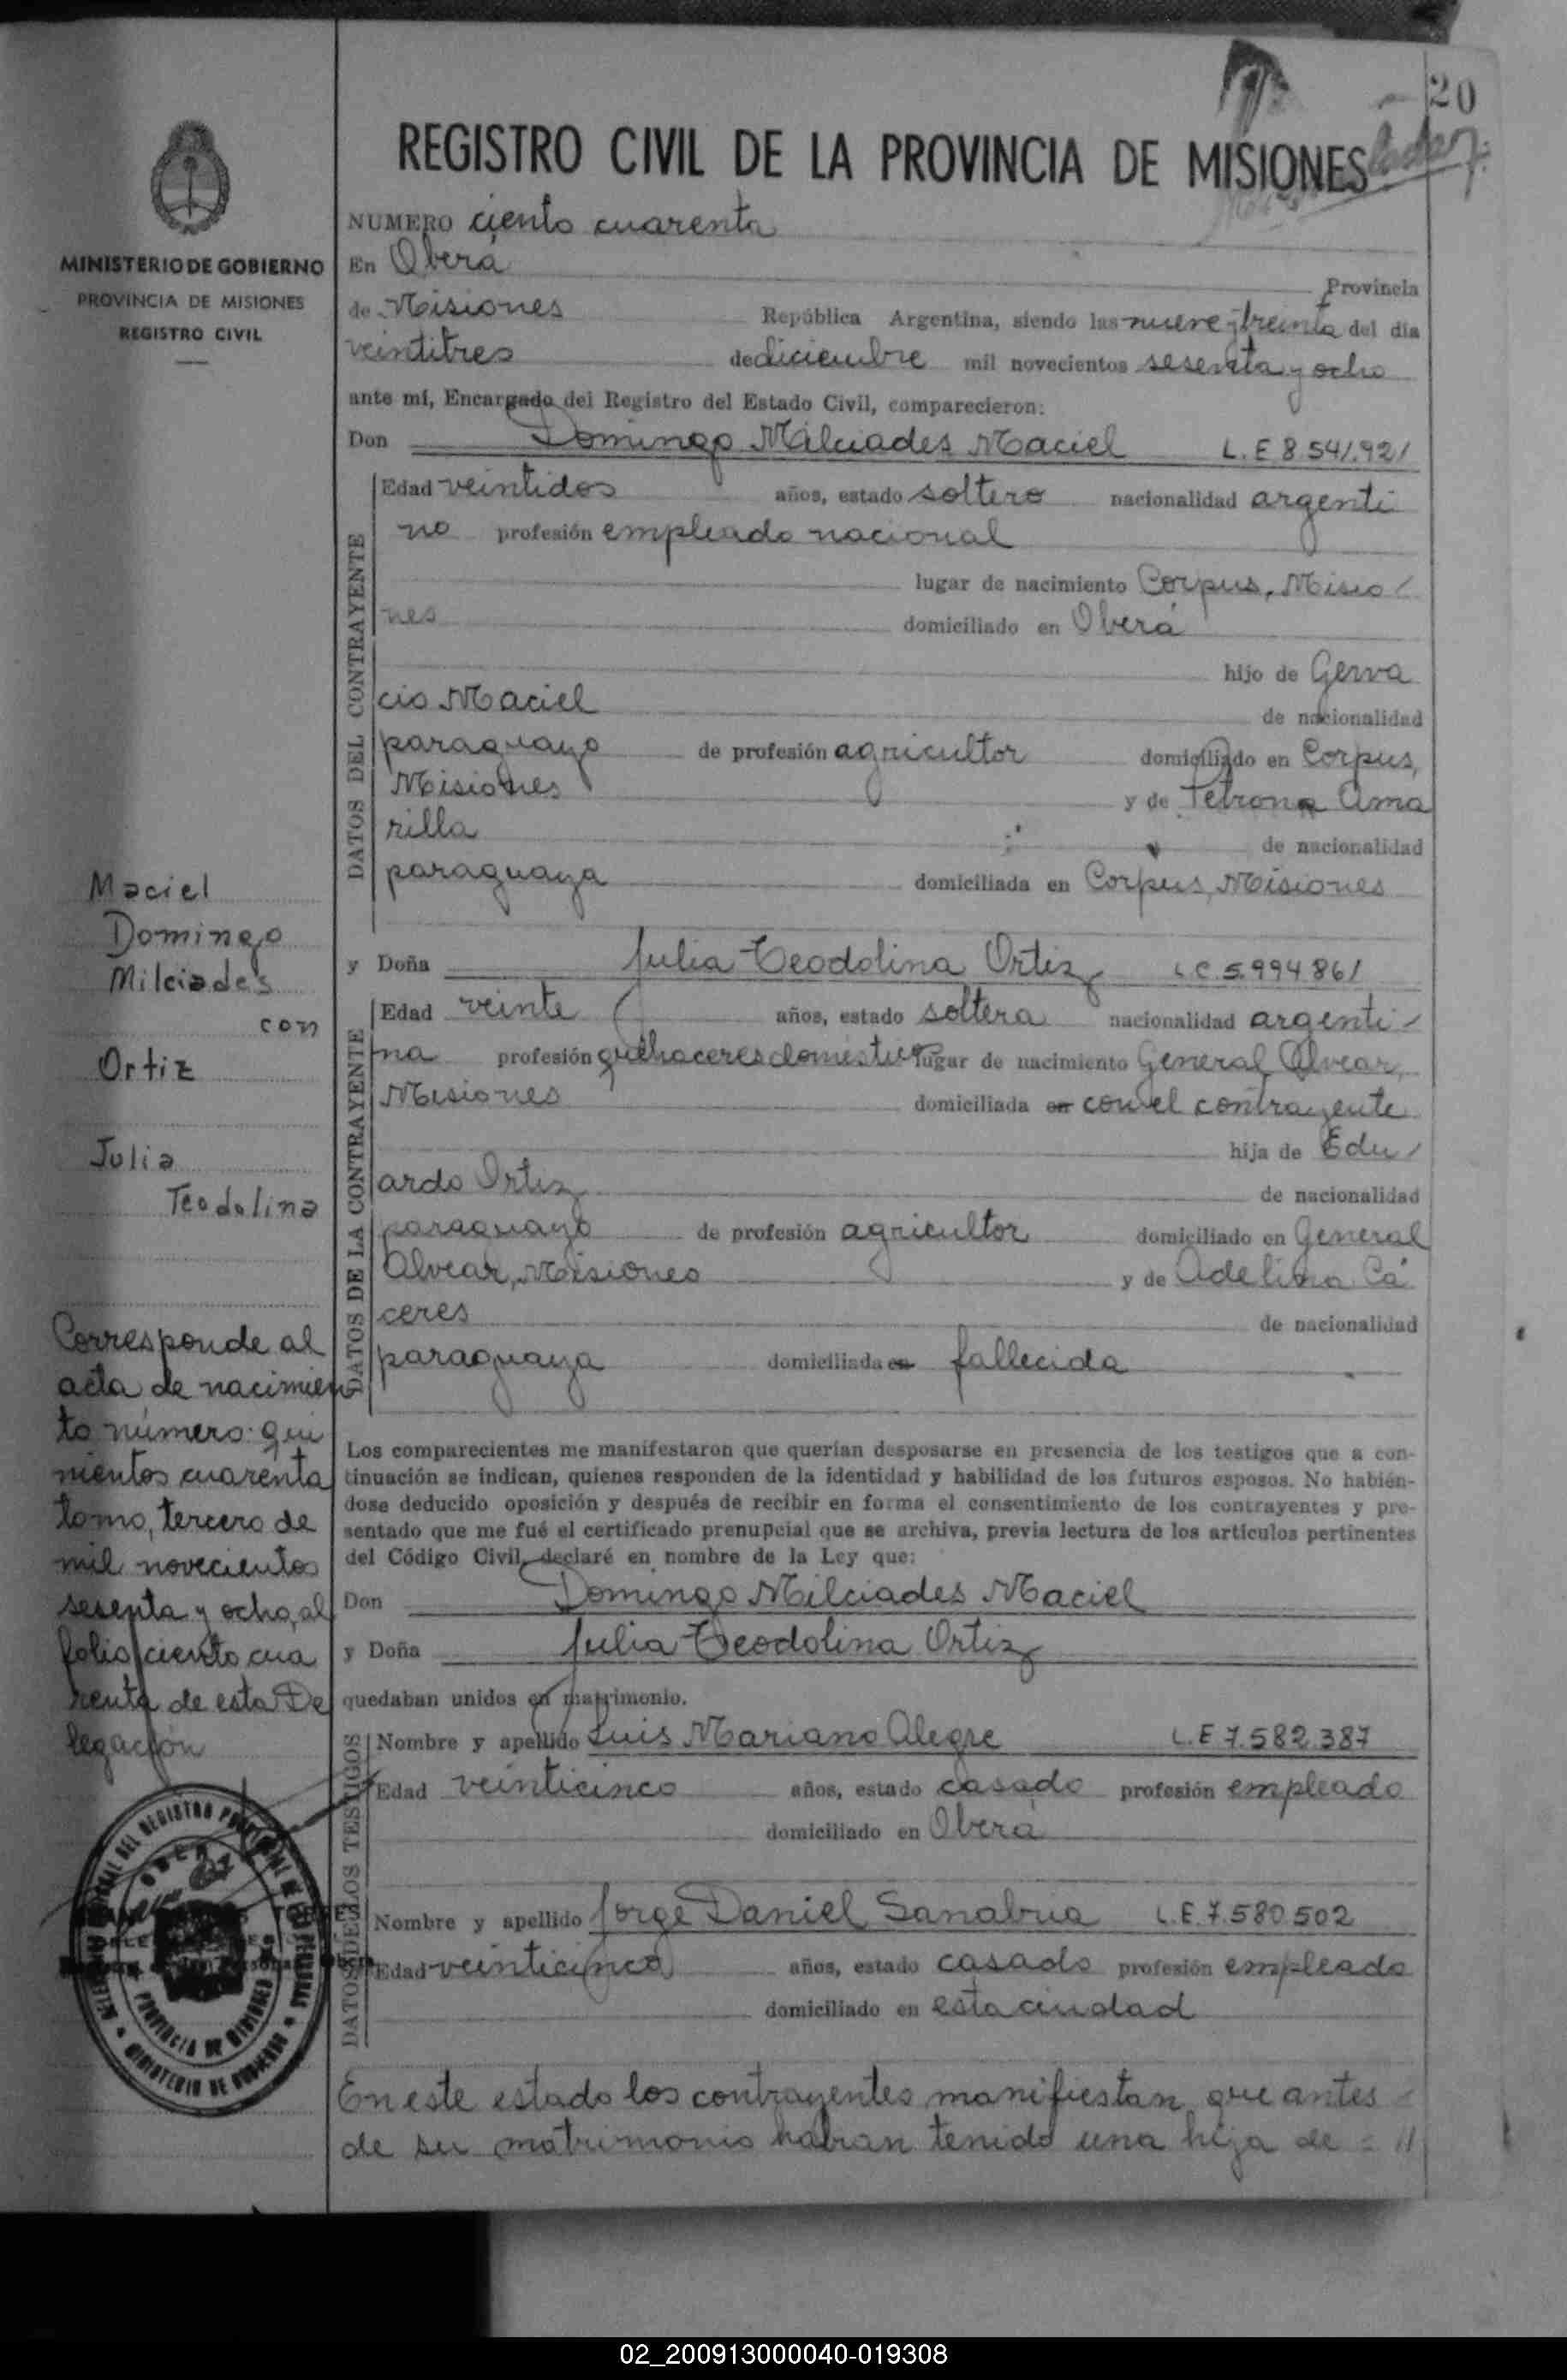 20
REGISTRO CIVIL DE LA PROVINCIA DE MISIONES
MINISTERIO DE GOBIERNO
PROVINCIA DE MISIONES
REGISTRO CIVIL
NUMERO ciento cuarenta
En Oberá Provincia
de Misiones República Argentina, siendo las nueve y treinta del día
veintitres de diciembre mil novecientos sesenta y ocho
ante mí, Encargado del Registro del Estado Civil, comparecieron:
Don Domingo Milciades Maciel L.E 8.541.921
DATOS DEL CONTRAYENTE
Edad veintidos años, estado soltero nacionalidad argenti
no profesión empleado nacional
lugar de nacimiento Corpus, Misio
nes domiciliado en Oberá
hijo de Gerva
cio Maciel de nacionalidad
paraguayo de profesión agricultor domiciliado en Corpus,
Misiones y de Petrona Ama
rilla de nacionalidad
paraguaya domiciliada en Corpus, Misiones
y Doña Julia Teodolina Ortiz L.C 5.994.861
DATOS DE LA CONTRAYENTE
Edad veinte años, estado soltera nacionalidad argenti-
na profesión quehaceres domesticos lugar de nacimiento General Alvear,
Misiones domiciliada en con el contrayente
hija de Edu
ardo Ortiz de nacionalidad
paraguayo de profesión agricultor domiciliado en General
Alvear, Misiones y de Adelina Cá
ceres de nacionalidad
paraguaya domiciliada en fallecida
Los comparecientes me manifestaron que querían desposarse en presencia de los testigos que a con-
tinuación se indican, quienes responden de la identidad y habilidad de los futuros esposos. No habién-
dose deducido oposición y después de recibir en forma el consentimiento de los contrayentes y pre-
sentado que me fué el certificado prenupcial que se archiva, previa lectura de los artículos pertinentes
del Código Civil, declaré en nombre de la Ley que:
Don Domingo Milciades Maciel
y Doña Julia Teodolina Ortiz
quedaban unidos en matrimonio.
DATOS DE LOS TESTIGOS
Nombre y apellido Luis Mariano Alegre L.E 7.582.387
Edad veinticinco años, estado casado profesión empleado
domiciliado en Oberá
Nombre y apellido Jorge Daniel Sanabria L.E. 7.580.502
Edad veinticinco años, estado casado profesión empleado
domiciliado en esta ciudad
En este estado los contrayentes manifiestan que antes
de su matrimonio habian tenido una hija de = //
Maciel
Domingo
Milciades
con
Ortiz
Julia
Teodolina
Corresponde al
acta de nacimien
to número: qui
nientos cuarenta
tomo, tercero de
mil novecientos
sesenta y ocho, al
folio ciento cua
renta de esta De
legación
OBERA
PROVINCIA DE MISIONES
MINISTERIO DE GOBIERNO
02_200913000040-019308